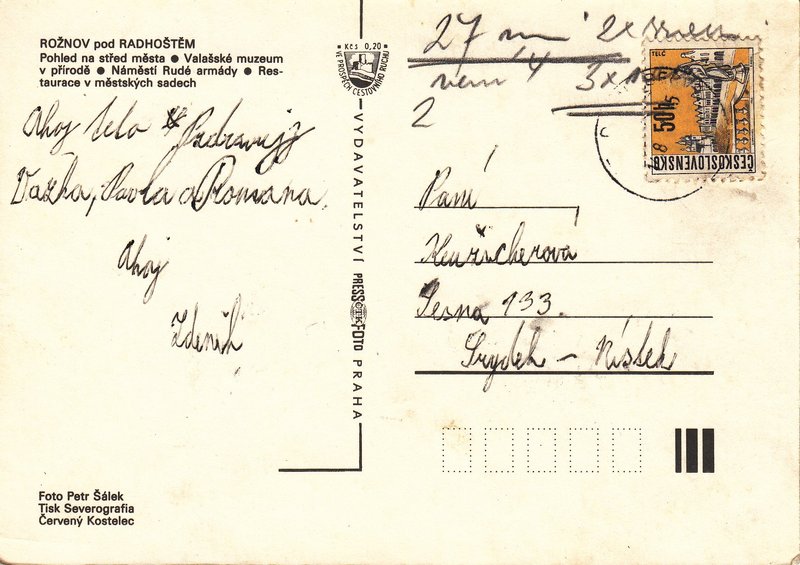 ROŽNOV pod RADHOŠTĚM
Pohled na střed města ● Valašské muzeum
v přírodě ● Náměstí Rudé armády ● Res-
taurace v městských sadech
Kčs 0,20
VE PROSPĚCH CESTOVNÍHO RUCHU
Ahoj
Pavla a Romana
Ahoj
Zdeněk
VYDAVATELSTVÍ PRESSFOTO PRAHA
ČTK
27
2x
3x
2
TELČ
50h
ČESKOSLOVENSKO
Paní
133.
Frýdek – Místek
Foto Petr Šálek
Tisk Severografia
Červený Kostelec